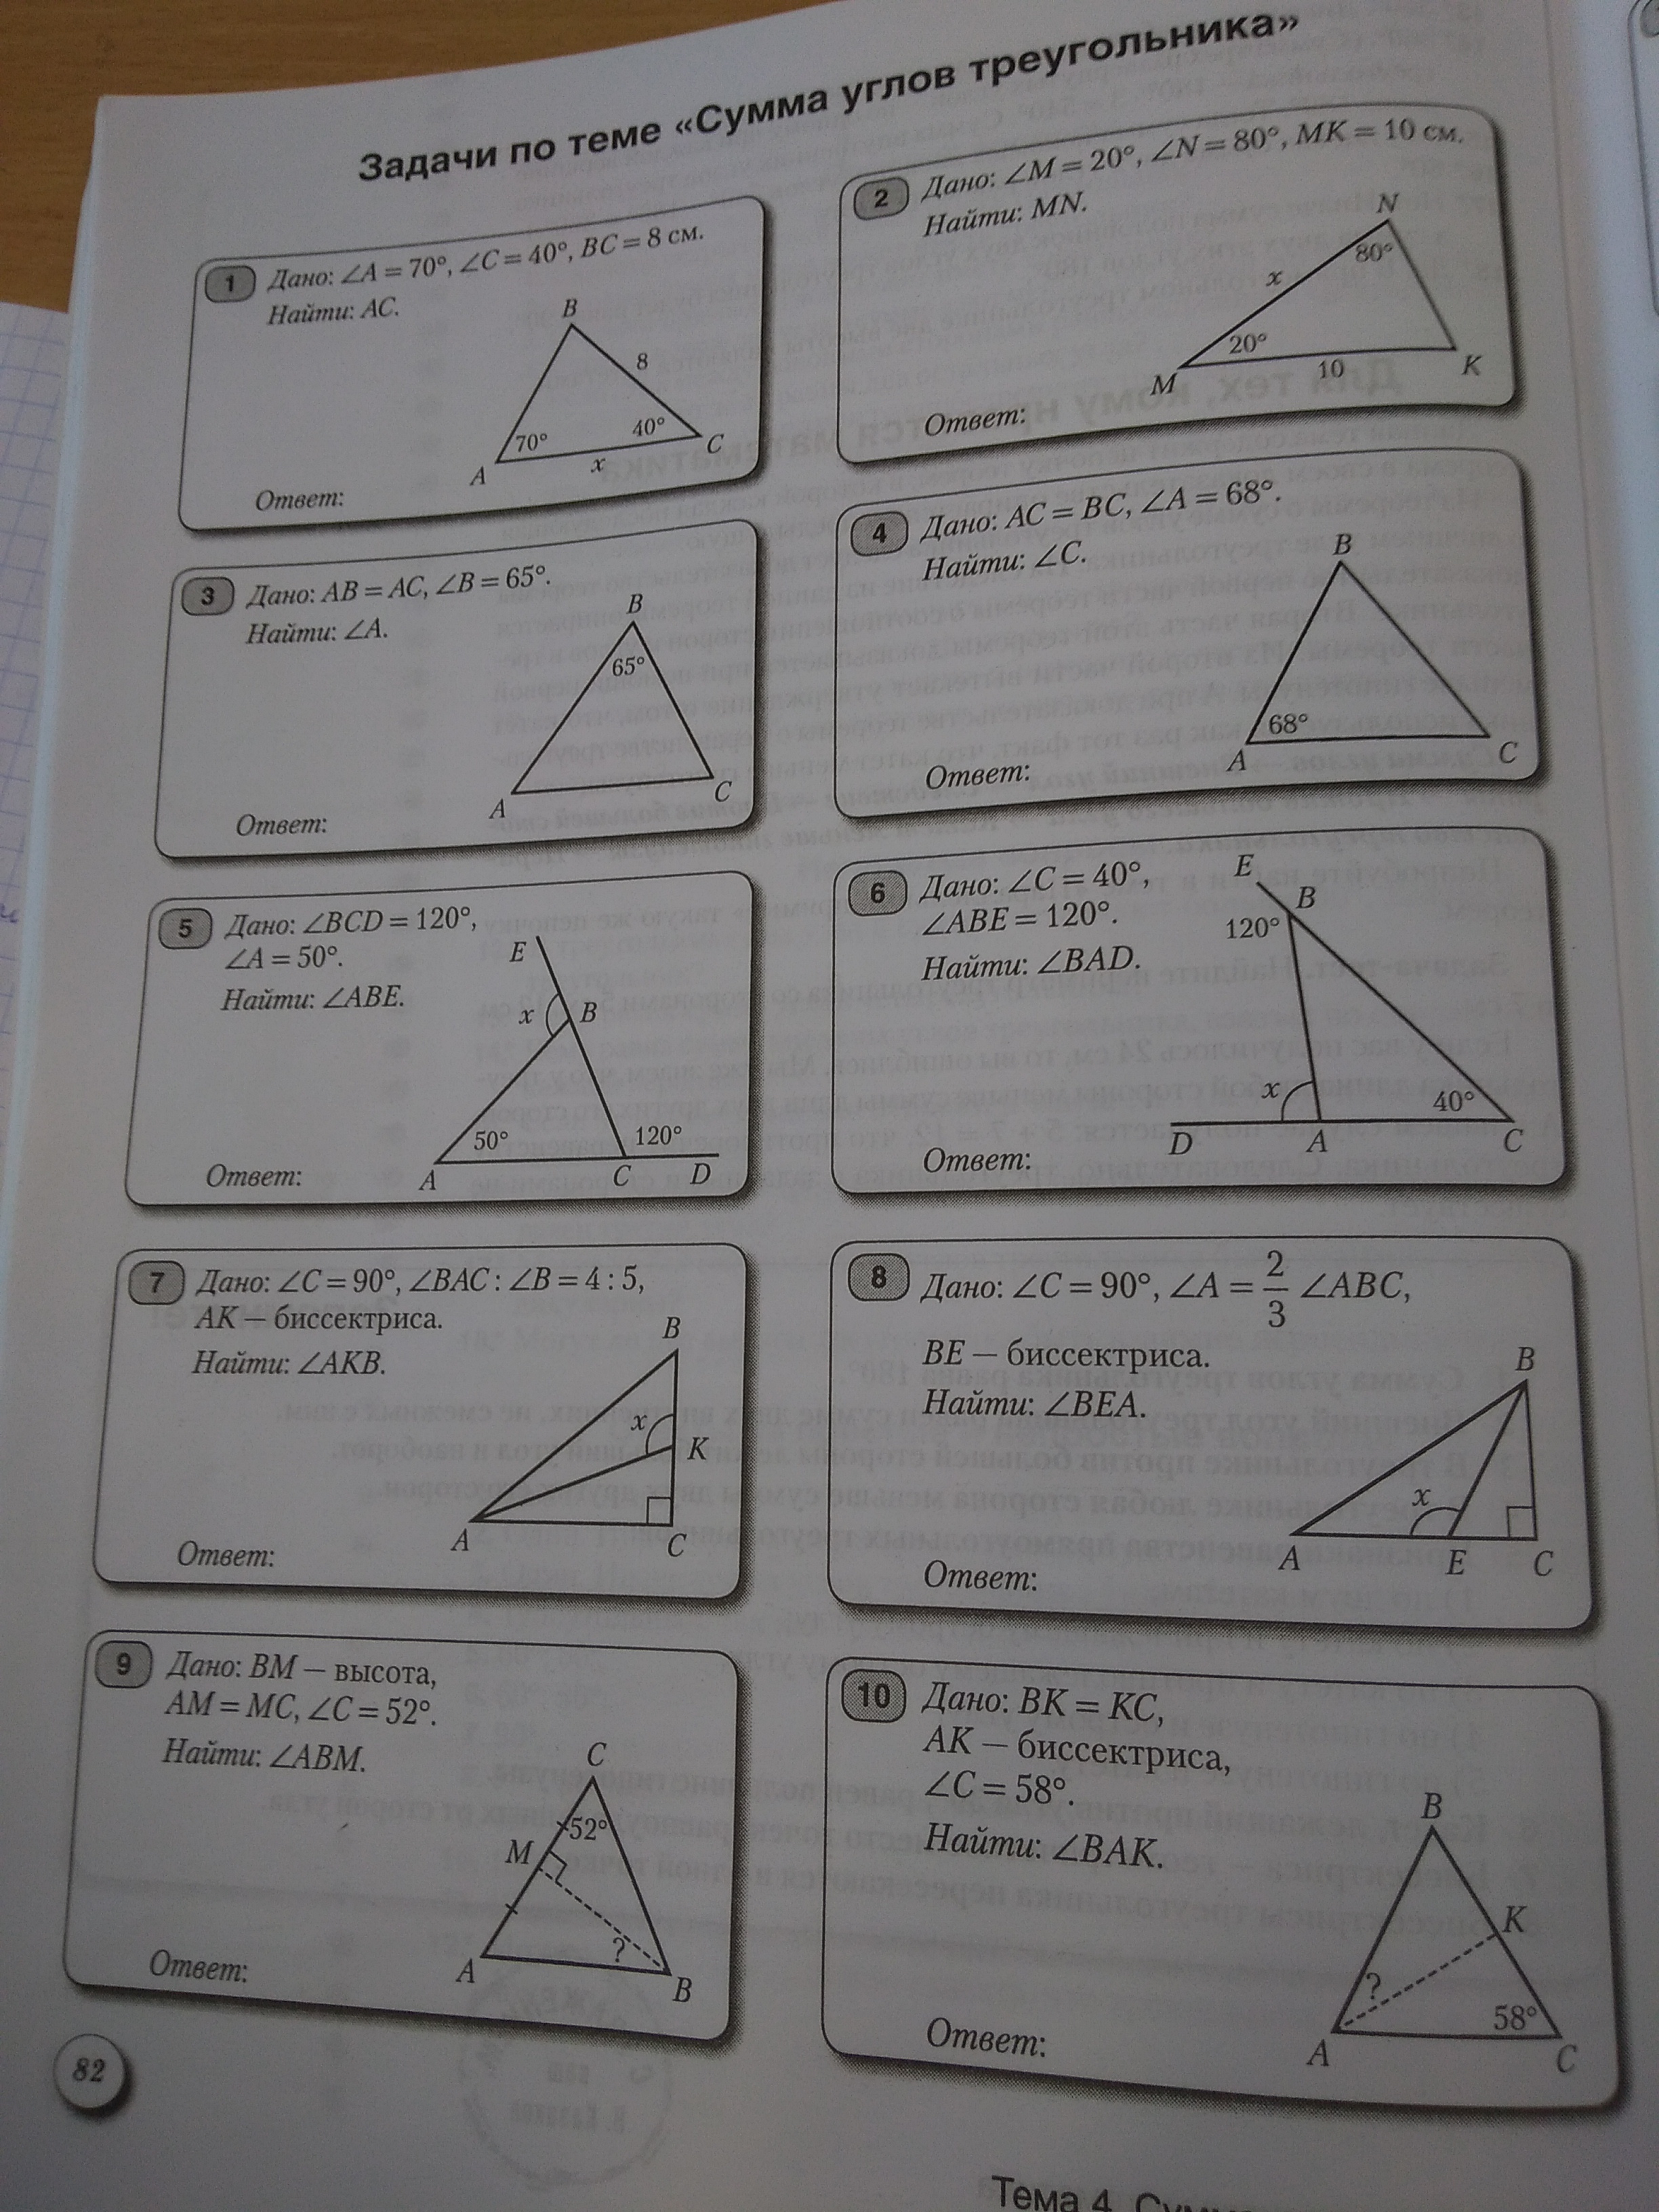 Задачи по теме «Сумма углов треугольника»
1 Дано: ∠A = 70°, ∠C = 40°, BC = 8 см.
Найти: AC.
B
8
70°
40°
A
x
C
Ответ:
2 Дано: ∠M = 20°, ∠N = 80°, MK = 10 см.
Найти: MN.
N
80°
x
20°
M
10
K
Ответ:
3 Дано: AB = AC, ∠B = 65°.
Найти: ∠A.
B
65°
A
C
Ответ:
4 Дано: AC = BC, ∠A = 68°.
Найти: ∠C.
B
68°
A
C
Ответ:
5 Дано: ∠BCD = 120°,
∠A = 50°.
Найти: ∠ABE.
E
x
B
50°
120°
A
C
D
Ответ:
6 Дано: ∠C = 40°,
∠ABE = 120°.
Найти: ∠BAD.
E
B
120°
x
40°
D
A
C
Ответ:
7 Дано: ∠C = 90°, ∠BAC : ∠B = 4 : 5,
AK — биссектриса.
Найти: ∠AKB.
B
x
K
A
C
Ответ:
8 Дано: ∠C = 90°, ∠A = 2/3 ∠ABC,
BE — биссектриса.
Найти: ∠BEA.
B
x
A
E
C
Ответ:
9 Дано: BM — высота,
AM = MC, ∠C = 52°.
Найти: ∠ABM.
C
52°
M
?
A
B
Ответ:
10 Дано: BK = KC,
AK — биссектриса,
∠C = 58°.
Найти: ∠BAK.
B
K
?
58°
A
C
Ответ:
82
Тема 4.